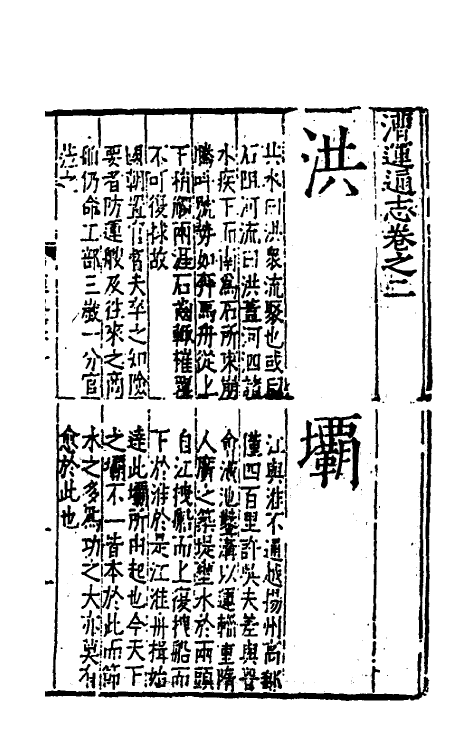 漕運通志卷之二
洪
共水曰洪衆流聚也或曰
石阻河流曰洪蓋河四諸
水疾下而南爲石所束崩
騰叫號勢如奔馬舟從上
下稍觸兩涯石齒輒摧
不可復捄故
國朝置官督夫卒之如險
要者防運艘及往來之商
舶仍命工部三歲一分官
涖之
壩
江與淮不通越揚州高郵
僅四百里許吳夫差與晉
會液池鑿溝以運輜重隋
人廣之築堤壅水於兩頭
自江拽船而上復拽船而
下於淮於是江淮舟揖始
達此壩所由起也今天下
之壩不一皆本於此而節
水之多爲功之大亦莫有
愈於此也